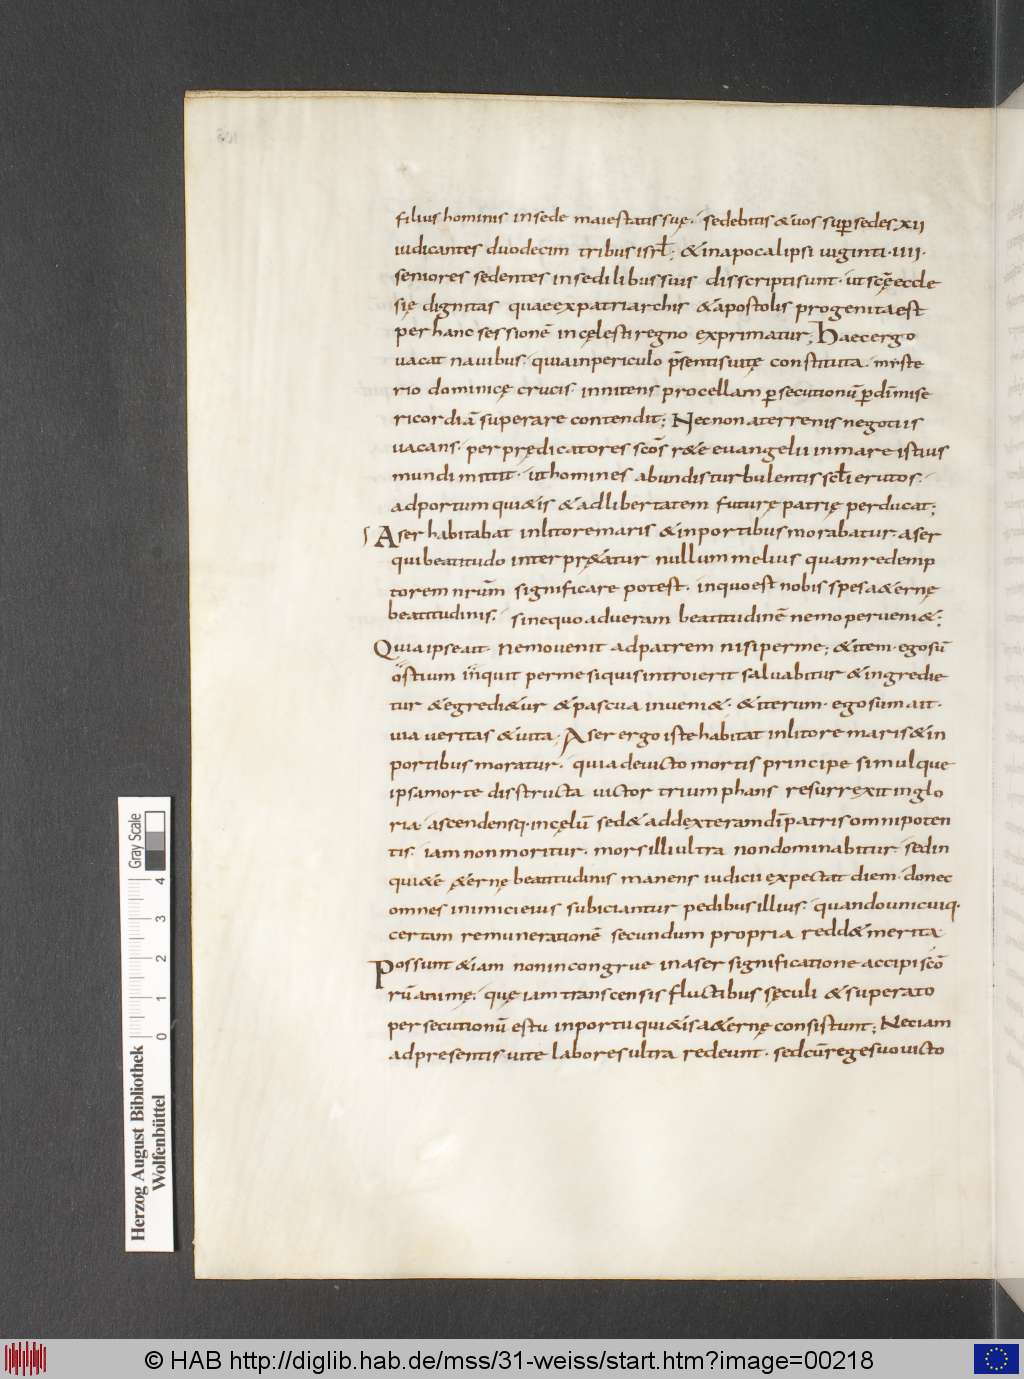 filius hominis in sede maiestatis suę. sedebitis & uos sup̄ sedes xii
iudicantes duodecim tribus isrł; & in apocalipsi uiginti · iiii ·
seniores sedentes in sedilibus suis disscripti sunt · ut scę̄ eccle
się dignitas quae ex patriarchis & apostolis progenita est
per hanc sessionē in cęlesti regno exprimatur; Haec ergo
uacat nauibus · quia in periculo p̄senti suitę constituta · myste
rio dominicę crucis · innitens procellam p̄secutionū p̄ dī mise
ricordiā superare contendit; Necnon a terrenis negotiis
uacans · per prędicatores scōs r&e euangelii in mare istius
mundi mittit · ut homines abundis turbulentis scłi erutos ·
ad portum qui&is & ad libertatem futurę patrię perducat;
Aser habitabat in litore maris & in portibus morabatur · aser
qui beatitudo interpr&atur nullum melius quam redemp
torem nrūm significare potest · in quo est nobis spes a&ernę
beatitudinis · sine quo ad ueram beatitudinē nemo perueni&;
Quia ipse ait · Nemo uenit ad patrem nisi per me; & item · ego sū
ostium inquit per me si quis introierit saluabitur & ingredie
tur & egredi&ur & pascua inueni& · & iterum · ego sum ait ·
uia ueritas & uita · Aser ergo iste habitat in litore maris & in
portibus moratur · quia deuicto mortis principe simulque
ipsa morte disstructa uictor triumphans resurręxit in glo
ria · ascendensq· in cęlū sed & ad dexteram dī patris omnipoten
tis · iam non moritur · mors illi ultra non dominabitur · sed in
qui&e &ernę beatitudinis manens iudicii expectat diem · donec
omnes inimici eius subiciantur pedibus illius · quando unicuiq·
certam remunerationē secundum propria redd& merita ·
Possunt &iam non incongrue in aser significatione accipi scō
rū animę · quę iam transcensis fluctibus sęculi & superato
persecutionū estu in portu qui&is a&ernę consistunt; Nec iam
ad presentis uite labores ultra redeunt · sed cū rege suo uicto
Gray Scale
0 1 2 3 4
Herzog August Bibliothek
Wolfenbüttel
© HAB http://diglib.hab.de/mss/31-weiss/start.htm?image=00218